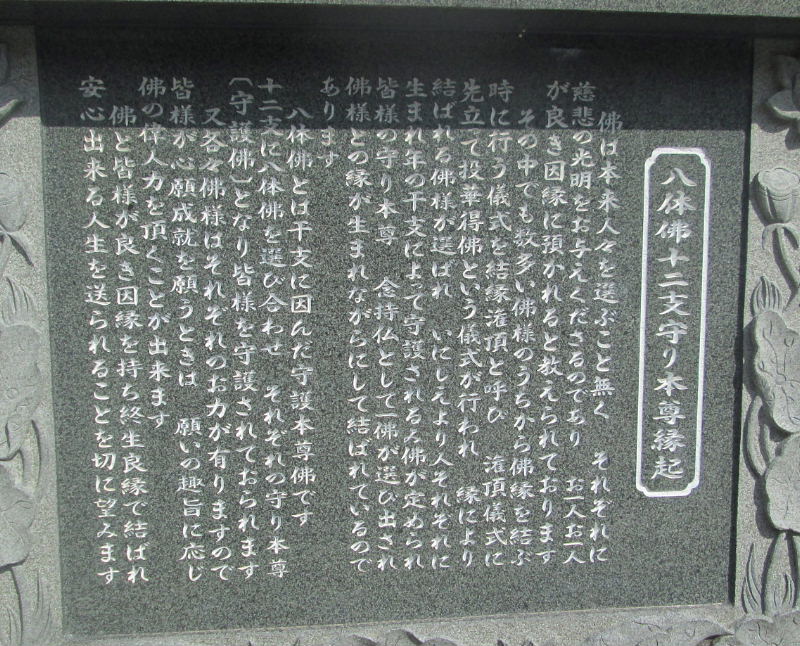 八体佛十二支守り本尊縁起
佛は本来人々を選ぶこと無く　それぞれに
慈悲の光明をお与えくださるのであり　お一人お一人
が良き因縁に預かれると教えられております
その中でも数多い佛様のうちから佛縁を結ぶ
時に行う儀式を結縁潅頂と呼び　潅頂儀式に
先立て投華得佛という儀式が行われ　縁により
結ばれる佛様が選ばれ　いにしえより人それぞれに
生まれ年の干支によって守護される八佛が定められ
皆様の守り本尊　念持仏として一佛が選び出され
佛様との縁が生まれながらにして結ばれているので
あります
八体佛とは干支に因んだ守護本尊佛です
十二支に八体佛を選び合わせ　それぞれの守り本尊
〔守護佛〕となり皆様を守護されておられます
又各々佛様はそれぞれのお力が有りますので
皆様が心願成就を願うときは　願いの趣旨に応じ
佛の偉人力を頂くことが出来ます
佛と皆様が良き因縁を持ち終生良縁で結ばれ
安心出来る人生を送られることを切に望みます